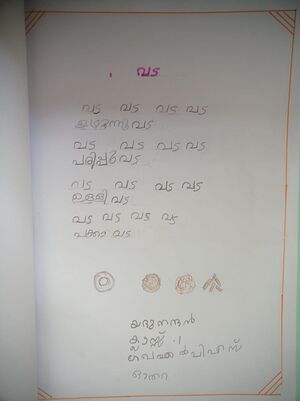 വട
വട വട വട വട
ഉഴുന്നു വട
വട വട വട വട
പരിപ്പു വട
വട വട വട വട
ഉള്ളി വട
വട വട വട വട
പക്കാ വട
യദുനന്ദൻ
ക്ലാസ്സ് 1
ഗവ എൽപിഎസ്
ഓതറ